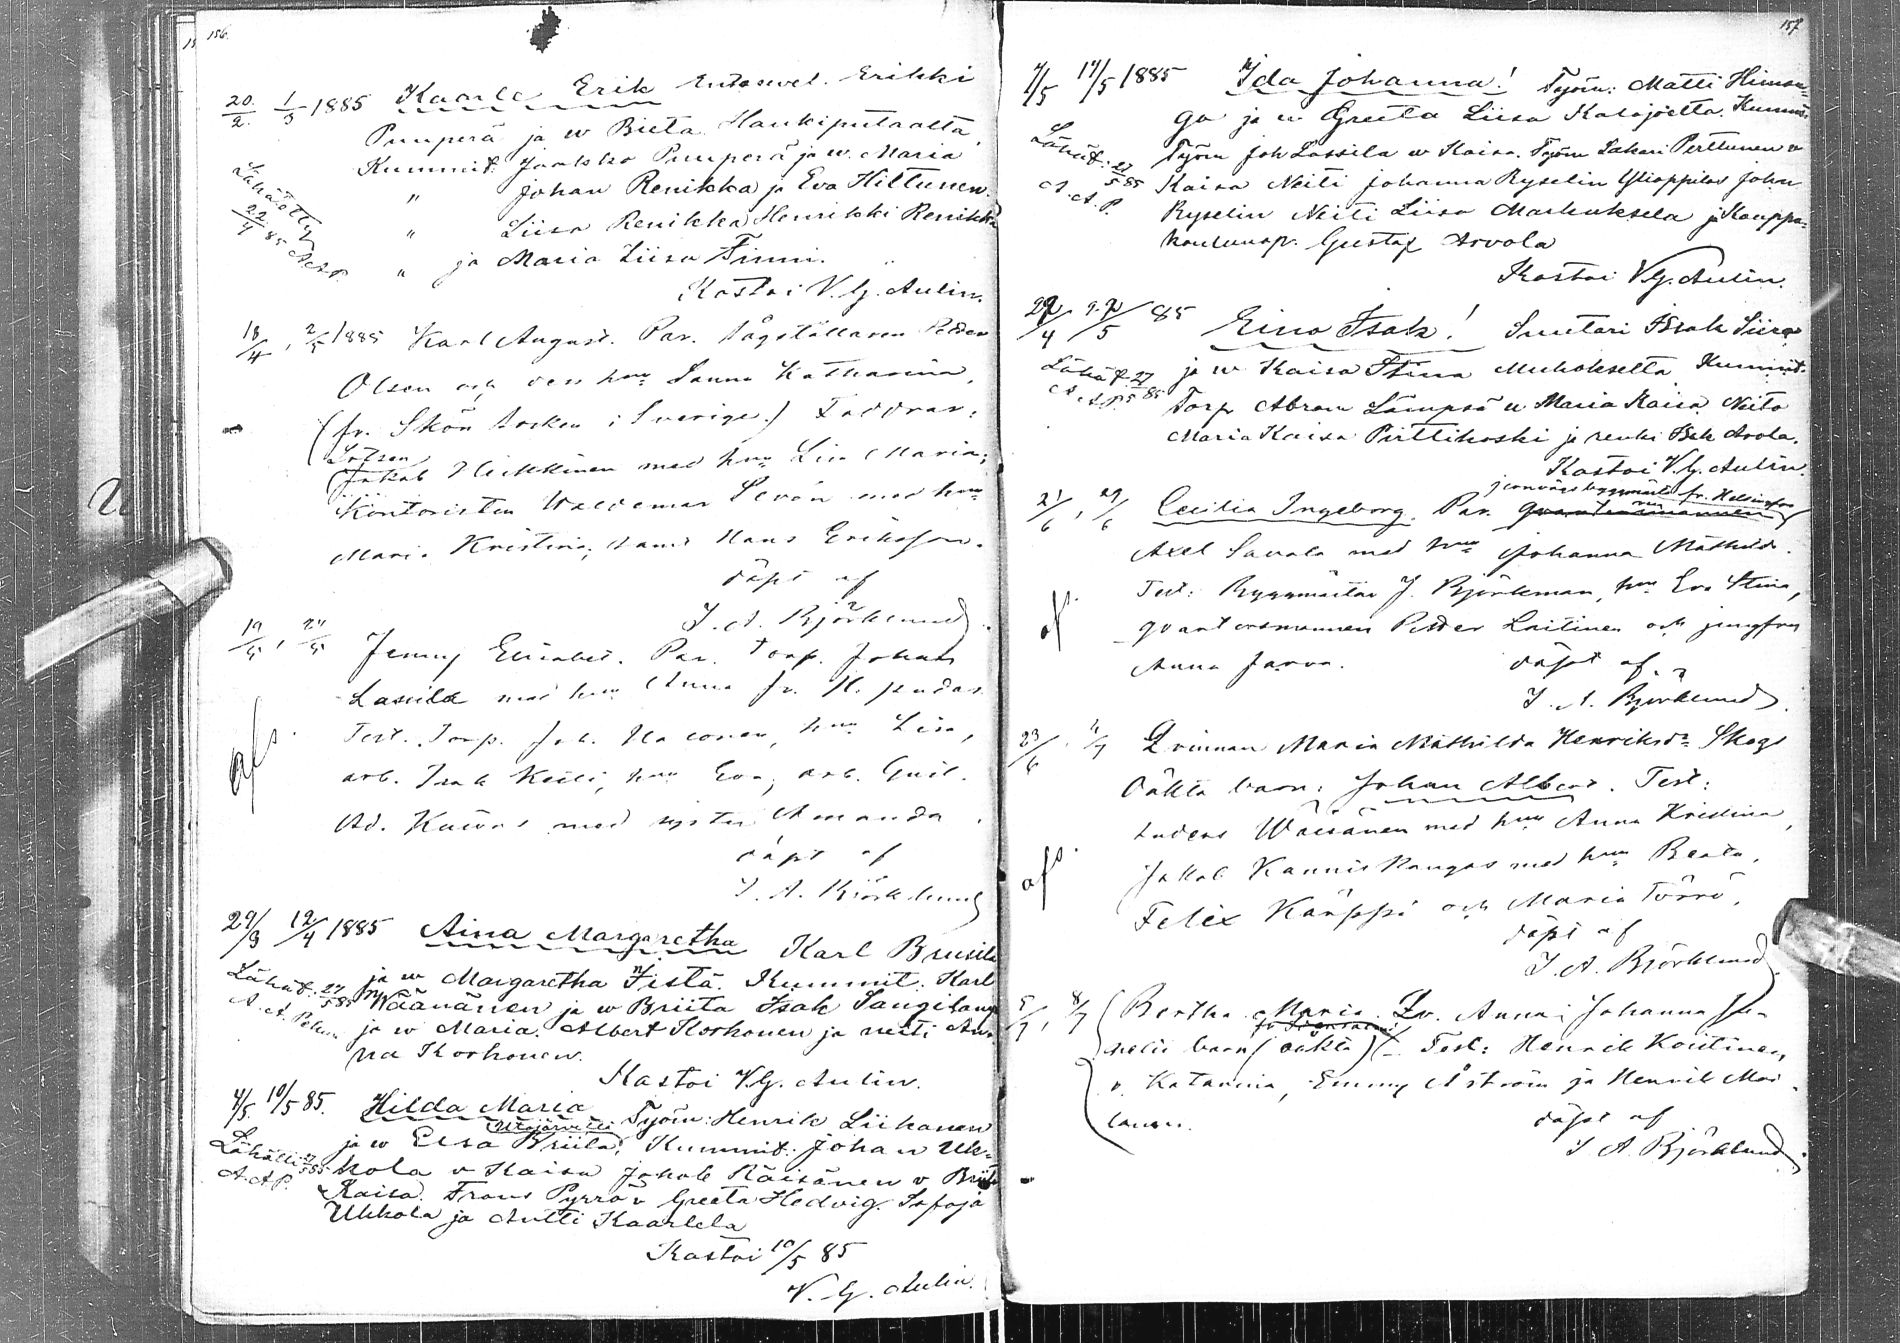 156.
20/2. 1/3 1885 Kaarle Erik Entosvel. Erikki
Puuperä ja w Brita Haukiputaalta
Kummit: Jaakko Puuperä ja w. Maria
" Johan Renikka ja Eva Hiltunen.
" Liisa Renikka Henrikki Renikka
" ja Maria Liisa Finni.
Lähätetty 22/4 85 A.A.P.
Kastoi V. G. Aulin.
18/4, 2/5 1885 Karl August. Par. Tågställaren Petter
Olsen och dess hu Sanna Katharina,
(fr. Skön socken i Sverige.) Faddrar:
Lotsen
Jakob Heikkinen med hu Lisa Maria;
Kontoristen Waldemar Sevón med hu
Maria Kristina, samt Hans Eriksson.
döpt af
J. A. Björklund.
19/5, 24/5 Jenny Elisabet. Par. Torp. Johan
Lassila med hu Anna fr. H. pudas
Test. Torp. Joh. Halonen, hu Lisa,
arb. Isak Keili, hu Eva, arb. Gust.
Ad. Kuivas med syster Amanda.
afs.
döpt af
J. A. Björklund
29/3 12/4 1885 Aina Margaretha Karl Brusila
ja w Margaretha Fistä. Kummit: Karl
Lähät. 27/5 85
A. A. Pelur.
Wäänänen ja w Briita Isak Sangilang
ja w Maria. Albert Korhonen ja neiti An-
na Korhonen.
Kastoi V.G. Aulin.
4/5. 10/5 85. Hilda Maria Työm: Henrik Liikanen
Utajärvelti
ja w Elsa Briita, Kummit: Johan Uk-
kola v Kaisa Jakob Räisänen v Briita
Kaisa. Frans Pyrrö v Greeta Hedvig. Sofaja
Ukkola ja Antti Kaarlela
A.A.P.
Kastoi 10/5 85
V. G. Aulin.
157
4/5 17/5 1885 Ida Johanna! Työm: Matti Himan-
ga ja w Greeta Liisa Kalajoelta. Kummit:
Työm Joh Lassila w Kaisa. Työm Sakari Perttunen v
Kaisa Neiti Johanna Ryselin Ylioppilas John
Ryselin Neiti Liisa Markuksela ja Kauppa-
koulunop. Gustaf Arvola
Lähät: 27/5 85
A. A. P.
Kastoi V.G. Aulin.
29/4 /5 85 Eino Isak! Suutari Isak Siira
ja w Kaisa Stina Muhokselta Kummit:
Torp Abram Lämpsä v Maria Kaisa Neito
Maria Kaisa Pirttikoski ja renki Isak Arvola.
Lähät 27/5 85
A. A.P.
Kastoi V. G. Aulin.
jernvägsbyggmäst fr. Helsingfors
21/6, 29/6 Cecilia Ingeborg. Par. qvartersmannen
Axel Savola med hu Johanna Mathilda.
Test: Byggmästar J. Björkman, hu Eva Stina,
qvartersmannen Petter Laitinen och jungfru
Anna Jarva. döpt af
af.
J. A. Björklund.
23/6, /7 Qvinnan Maria Mathilda Henriksdr Skogs
oäkta barn: Johan Albert. Test:
Anders Wäisänen med hu Anna Kristina,
Jakob Kauniskangas med hu Beata,
Felix Karppi och Maria Törrö,
afs.
döpt af
J. A. Björklund.
5/7, 8/7 Bertha Maria. Qv. Anna Johanna Hu-
selii barn (oäkta) Test: Henrik Koutinen
v. Katarina, Emmy Åström ja Henrik Moi-
lanen.
döpt af
J A. Björklund.